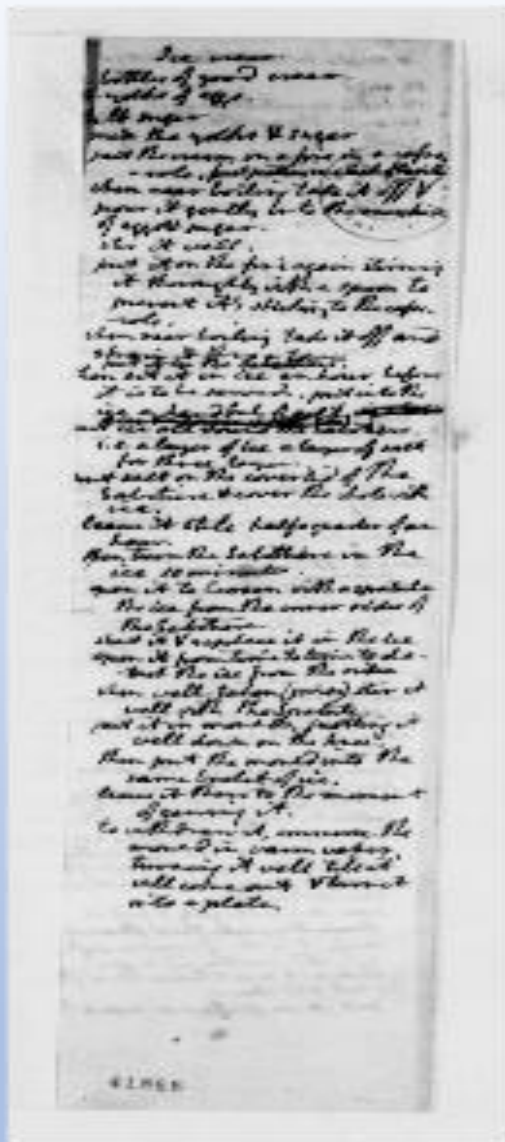 Ice cream.
bottles of good cream
yolks of eggs.
lb sugar
mix the yolks & sugar
put the cream on a fire in a casse-
-role,
when near boiling take it off &
pour it gently into the mixture
of eggs & sugar.
stir it well.
put it on the fire again stirring
it thoroughly with a spoon to
prevent it's sticking to the casse-
-role.
when near boiling take it off and
strain it
then set it in ice an hour before
it is to be served. put into the

put ice all around the
i.e. a layer of ice a layer of salt
for three layers.
put salt on the coverlid of the
Sabotiere & cover the whole with
ice.
leave it still half a quarter of an
hour.
then turn the Sabottiere in the
ice 10 minutes
open it to loosen with a spatula
the ice from the inner sides of
the Sabotiere.
shut it & replace it in the ice
open it from time to time to de-
-tach the ice from the sides
when well taken (prise) stir it
well with the Spatula.
put it in moulds, justling it
well down on the knee.
then put the mould into the
same bucket of ice.
leave it there to the moment
of serving it.
to withdraw it, immerse the
mould in warm water,
turning it well till it
will come out & turn it
into a plate.